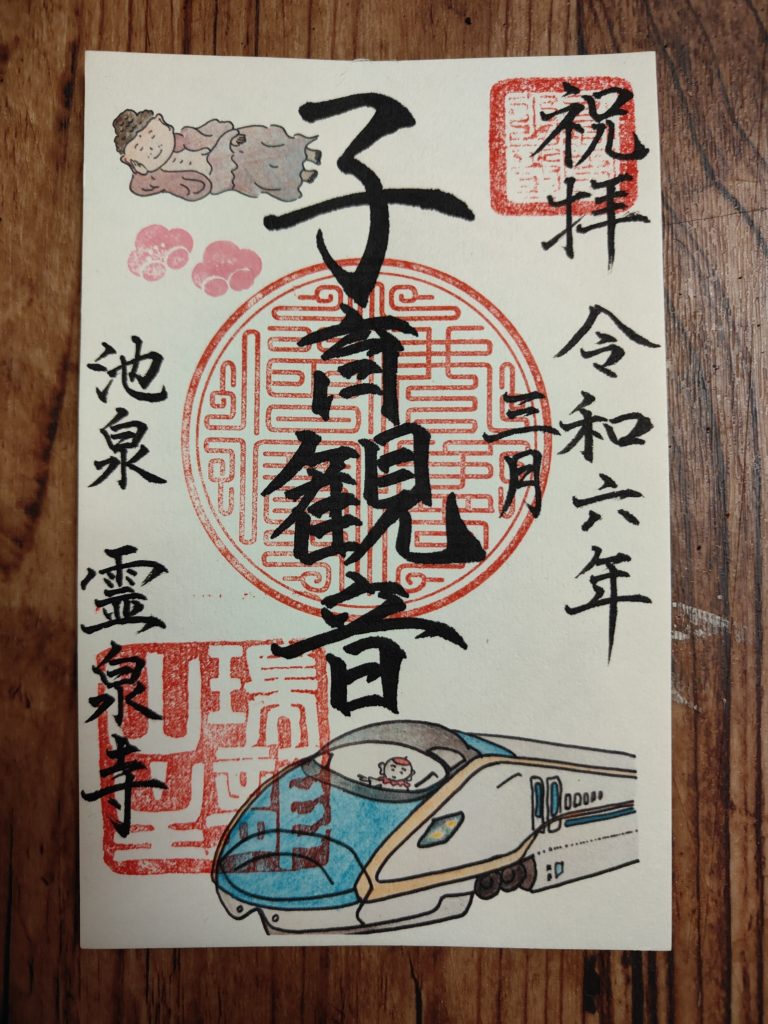 祝拝
令和六年
三月
子育観音
池泉 霊泉寺